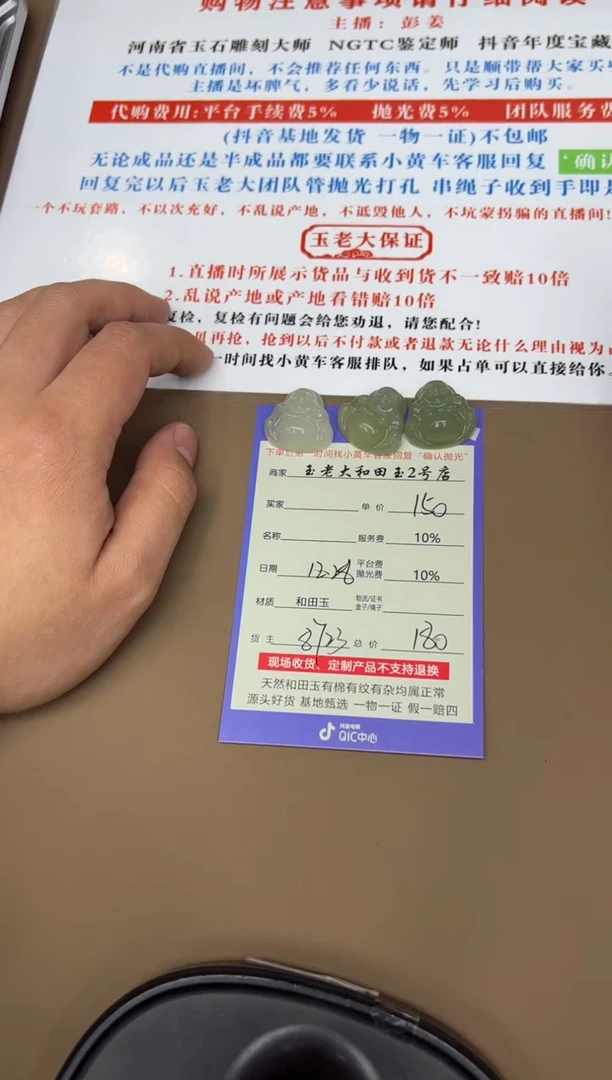 购物注意事项请仔细阅读
主播：彭姜
河南省玉石雕刻大师 NGTC鉴定师 抖音年度宝藏
不是代购直播间，不会推荐任何东西。只是顺带帮大家买
主播是坏脾气，多看少说话，先学习后购买。
代购费用:平台手续费5% 抛光费5% 团队服务费
(抖音基地发货 一物一证)不包邮
无论成品还是半成品都要联系小黄车客服回复 "确认
回复完以后玉老大团队管抛光打孔 串绳子收到手即
一个不玩套路，不以次充好，不乱说产地，不诋毁他人，不坑蒙拐骗的直播间!
玉老大保证
1.直播时所展示货品与收到货不一致赔10倍
2.乱说产地或产地看错赔10倍
复检，复检有问题会给您劝退，请您配合!
再抢，抢到以后不付款或者退款无论什么理由视为
一时间找小黄车客服排队，如果占单可以直接给你。
下单后第一时间找小黄车客服回复"确认抛光"
商家 玉老大和田玉2号店
买家 单价 150
名称 服务费 10%
日期 12.28 平台费 抛光费 10%
材质 和田玉 物流/证书 盒子/绳子
货主 8723 总价 180
现场收货、定制产品不支持退换
天然和田玉有棉有纹有杂均属正常
源头好货 基地甄选 一物一证 假一赔四
抖音电商
QIC中心